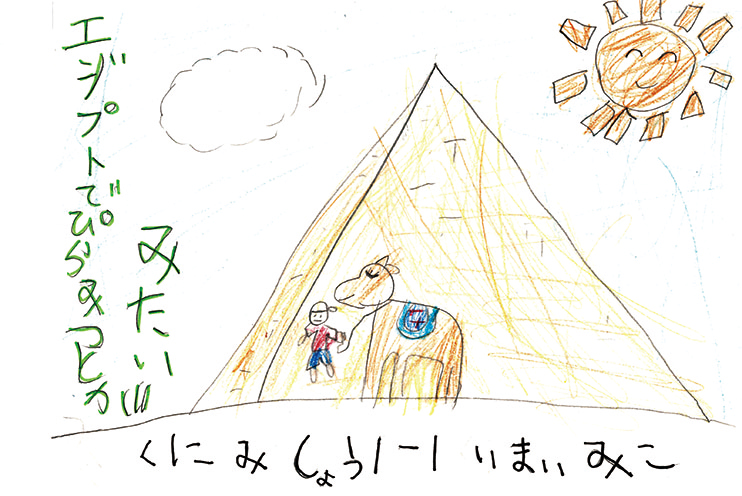 エジプトでぴらみっとが
みたい!!
くにみ しょう 1-1 いまい みこ